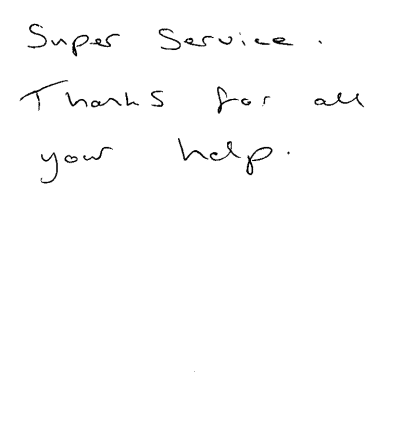 Super Service.
Thanks for all
your help.